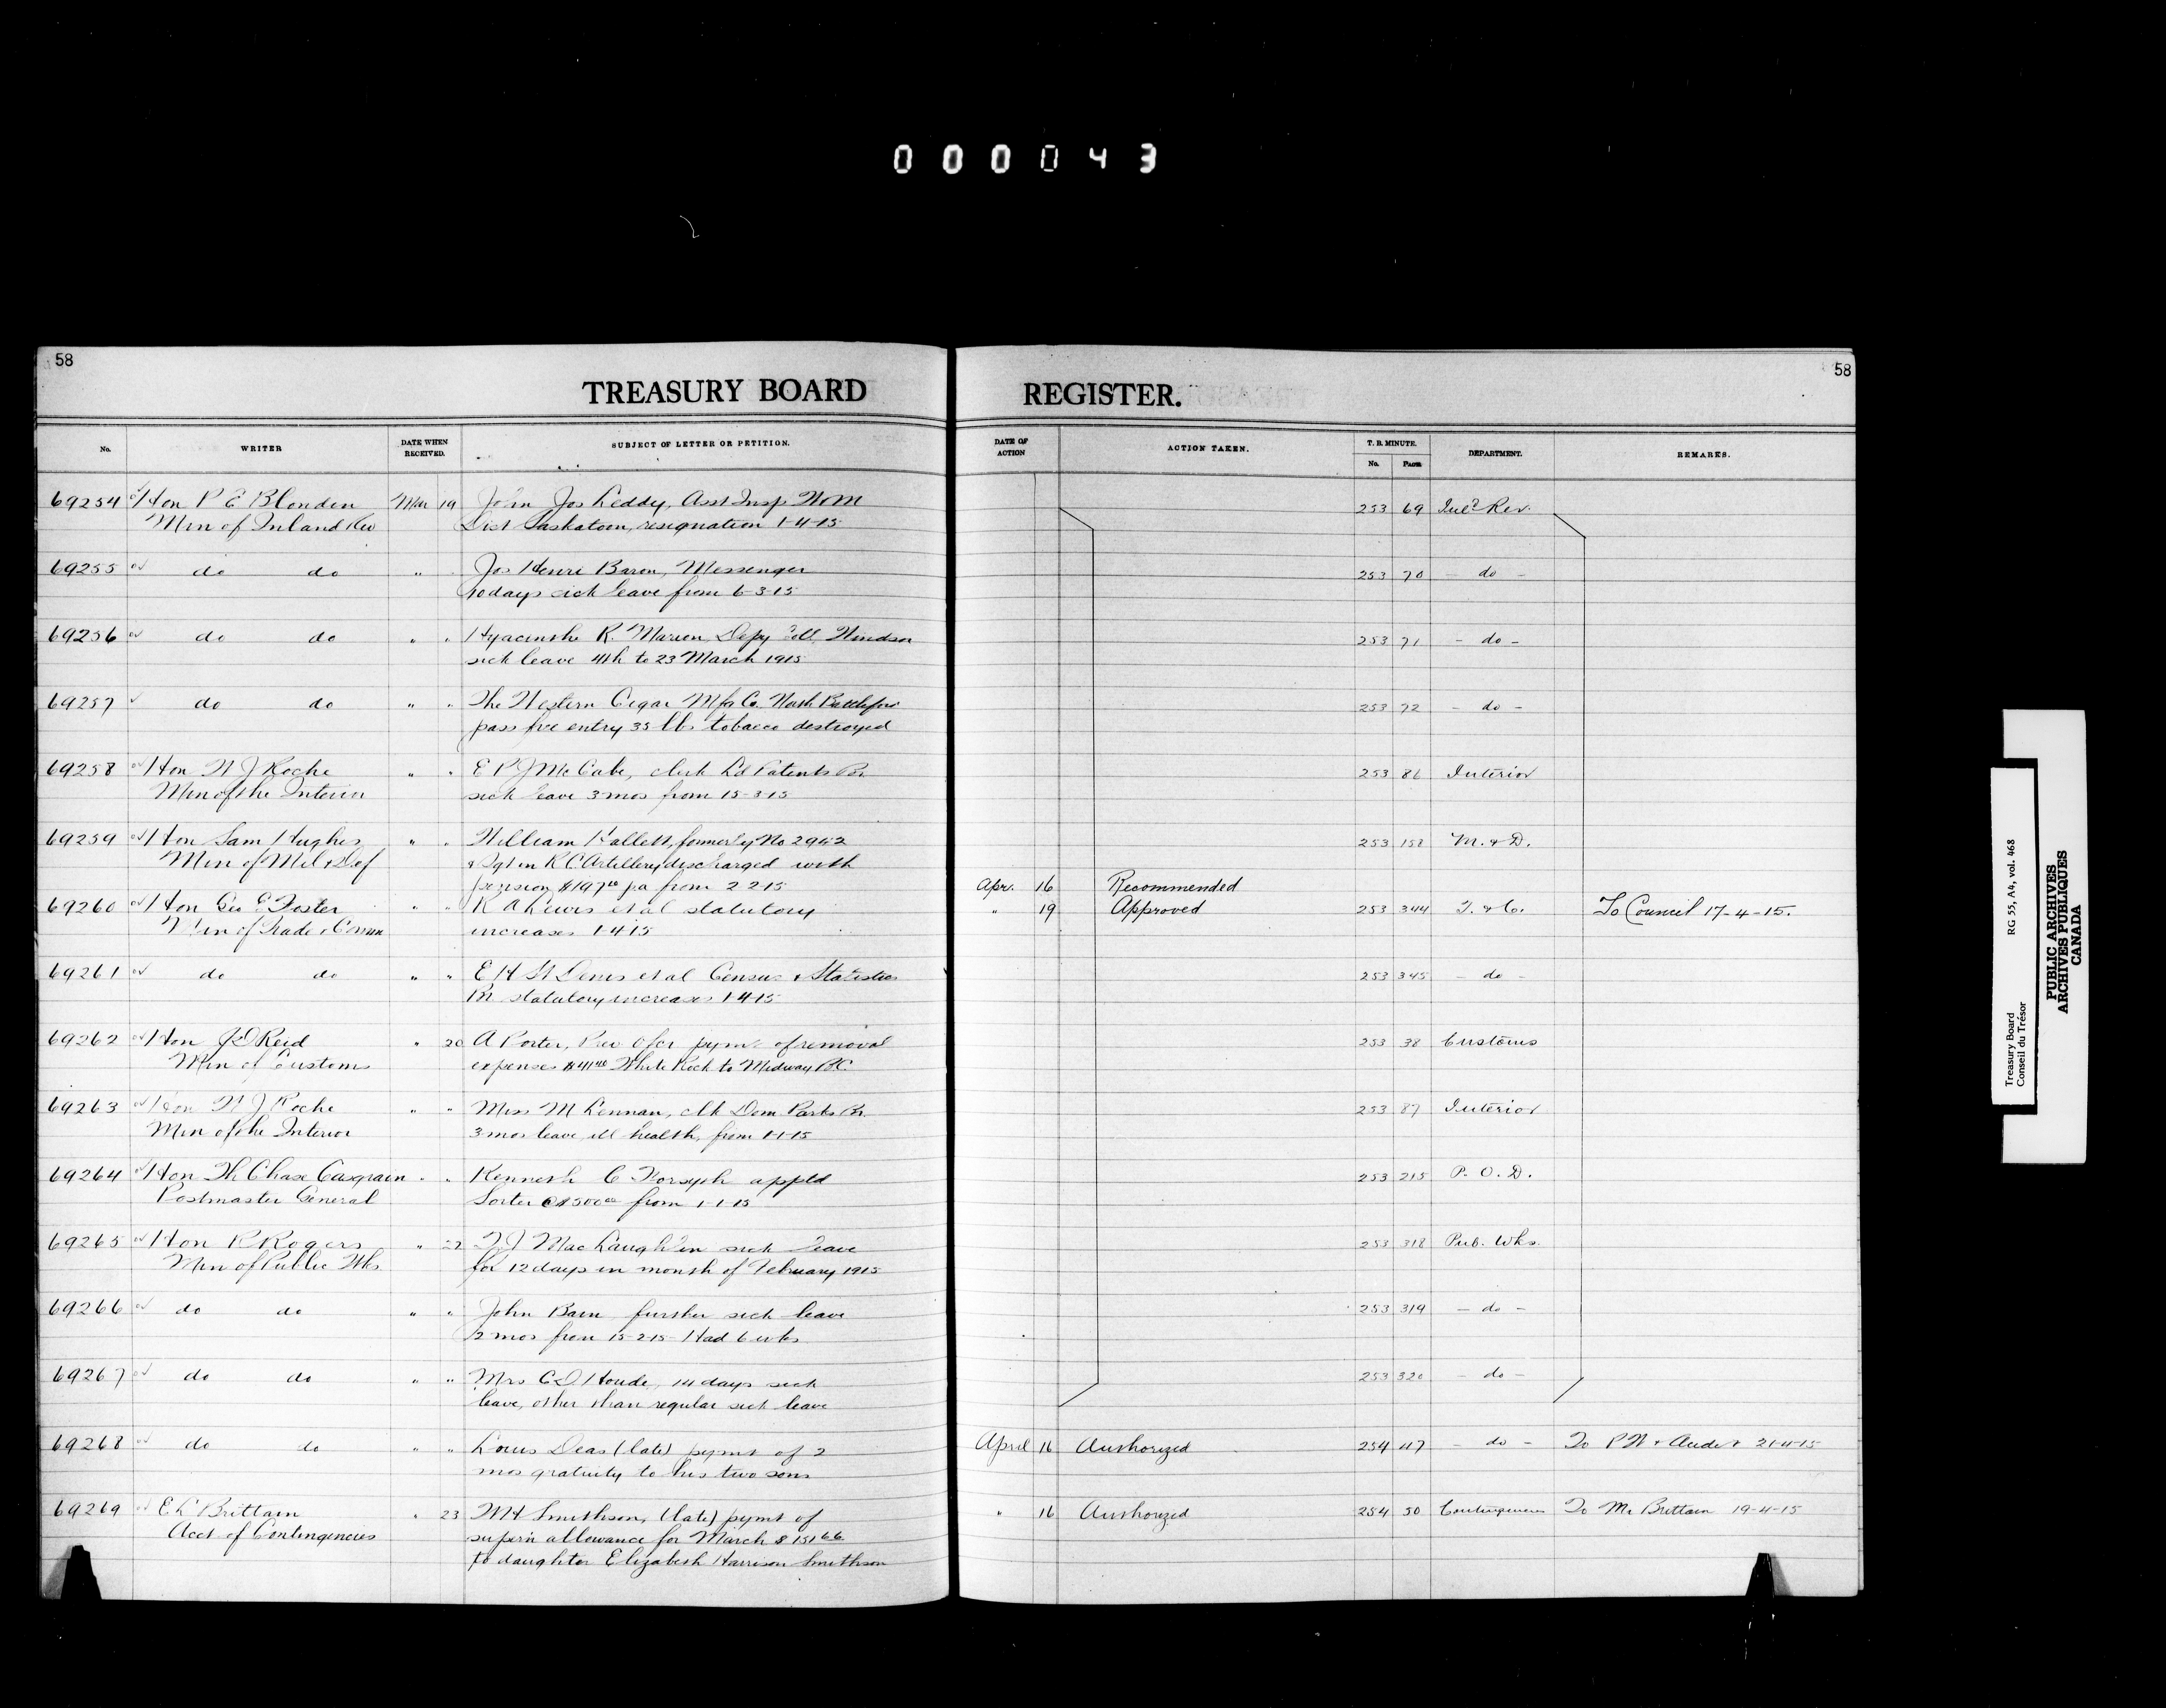 000043
58
TREASURY BOARD
REGISTER.
58
No.
WRITER
DATE WHEN RECEIVED.
SUBJECT OF LETTER OR PETITION.
DATE OF ACTION
ACTION TAKEN.
T. B. MINUTE.
No.
PAGE
DEPARTMENT.
REMARKS.
69254 Hon P E Blondin Mar 19 John Jos Leddy, Asst Insp W&M 253 69 Inld Rev.
Min of Inland Rev Dist Saskatoon, resignation 1-4-15
69255 do do " Jos Henri Baron, Messenger 253 70 - do -
10 days sick leave from 6-3-15
69256 do do " " Hyacinthe R. Marion Depy Coll Windsor 253 71 - do -
sick leave 4th to 23 March 1915
69257 do do " " The Western Cigar Mfg Co. North Battleford 253 72 - do -
pass free entry 35 lbs tobacco destroyed
69258 Hon W J Roche " " E P J McCabe, clerk Ld Patents Br. 253 86 Interior
Min of the Interior sick leave 3 mos from 15-3-15
69259 Hon Sam Hughes " " William Hallett, formerly No 2942 253 158 M. & D.
Min of Mil & Def & Sgt in R C Artillery discharged with
pension $197 pa from 2 2 15 Apr. 16 Recommended
69260 Hon Geo E Foster " " R A Lewis et al statutory " 19 Approved 253 344 T. & C. To Council 17-4-15.
Min of Trade & Comm increases 1-4-15
69261 do do " " E H St Denis et al Census & Statistics 253 345 - do -
Br. statutory increases 1-4-15
69262 Hon J D Reid " 20 A Porter, Prev Ofcr pymt of removal 253 38 Customs
Min of Customs expenses White Rock to Midway B.C.
69263 Hon W J Roche " " Miss M Lennan, clk Dom Parks Br. 253 87 Interior
Min of the Interior 3 mos leave, ill health, from 1-1-15
69264 Hon Th Chase Casgrain " " Kenneth C Forsyth appld 253 215 P. O. D.
Postmaster General Sorter @ $500 from 1-1-15
69265 Hon R Rogers " 22 MacLaughlin sick leave 253 318 Pub. Wks.
Min of Public Wks for 12 days in month of February 1915
69266 do do " " John Bain further sick leave 253 319 - do -
2 mos from 15-2-15 Had 6 wks
69267 do do " " Mrs C D Houde, 14 days sick 253 320 - do -
leave, other than regular sick leave
69268 do do " " Louis Deas (late) pymt of 2 April 16 Authorized 254 47 - do - To P W & Audit 21-4-15
mos gratuity to his two sons
69269 E L Brittain " 23 W H Smithson, (late) pymt of " 16 Authorized 254 50 Contingencies To Mr Brittain 19-4-15
Acct of Contingencies supern allowance for March $ 151 66
to daughter Elizabeth Harrison Smithson
Treasury Board RG 55, A4, vol. 468
Conseil du Trésor
PUBLIC ARCHIVES
ARCHIVES PUBLIQUES
CANADA